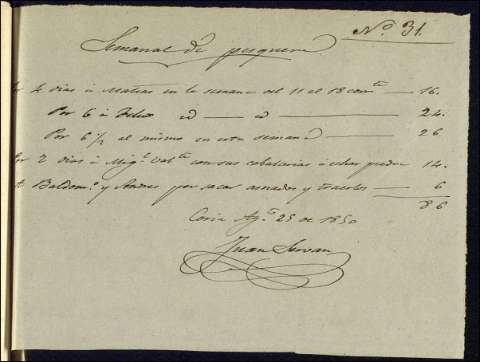 Nº 31.
Semanal de pesquera
4 dias á Matias en la semana del 11 al 18 corrte 16.
Por 6 á id id 24.
Por 6 1/2 al mismo en esta semana 26
2 dias á Migl. con sus caballerias á echar piedra 14.
Baldomo. y Andres por sacar arenados y traerlos 6
86
Coria Agto 25 de 1850
Juan Servan